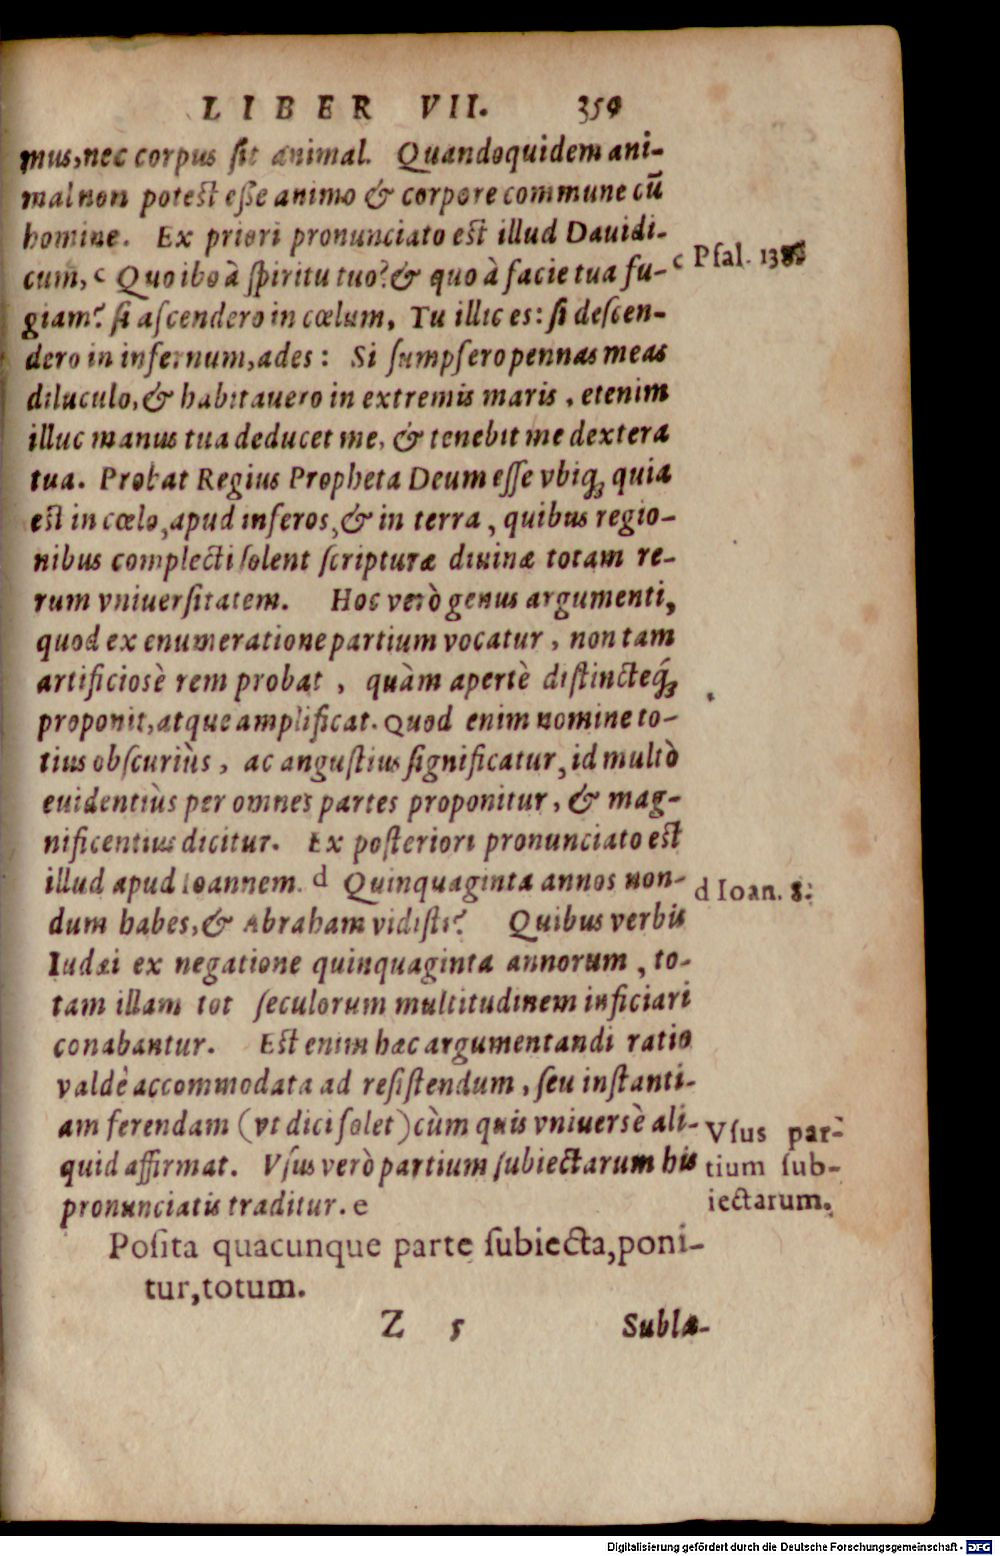 LIBER VII. 359
mus, nec corpus sit animal. Quandoquidem ani-
mal non potest esse animo & corpore commune cū
homine. Ex priori pronunciato est illud Dauidi-
cum, c Quo ibo à spiritu tuo? & quo à facie tua fu-
c Psal. 138.
giam? si ascendero in cœlum, Tu illic es: si descen-
dero in infernum, ades: Si sumpsero pennas meas
diluculo, & habitauero in extremis maris, etenim
illuc manus tua deducet me, & tenebit me dextera
tua. Probat Regius Propheta Deum esse vbiq; quia
est in cœlo, apud inferos, & in terra, quibus regio-
nibus complecti solent scripturæ diuinæ totam re-
rum vniuersitatem. Hoc verò genus argumenti,
quod ex enumeratione partium vocatur, non tam
artificiosè rem probat, quàm apertè distincteq́;
proponit, atque amplificat. Quod enim nomine to-
tius obscuriùs, ac angustius significatur, id multò
euidentiùs per omnes partes proponitur, & mag-
nificentius dicitur. Ex posteriori pronunciato est
illud apud Ioannem. d Quinquaginta annos non-
d Ioan. 8.
dum habes, & Abraham vidisti? Quibus verbis
Iudæi ex negatione quinquaginta annorum, to-
tam illam tot seculorum multitudinem inficiari
conabantur. Est enim hæc argumentandi ratio
valdè accommodata ad resistendum, seu instanti-
am ferendam (vt dici solet) cùm quis vniuersè ali-
quid affirmat. Vsus verò partium subiectarum his
pronunciatis traditur. e
Vsus par-
tium sub-
iectarum.
Posita quacunque parte subiecta, poni-
tur, totum.
Z 5 Subla-
Digitalisierung gefördert durch die Deutsche Forschungsgemeinschaft - DFG